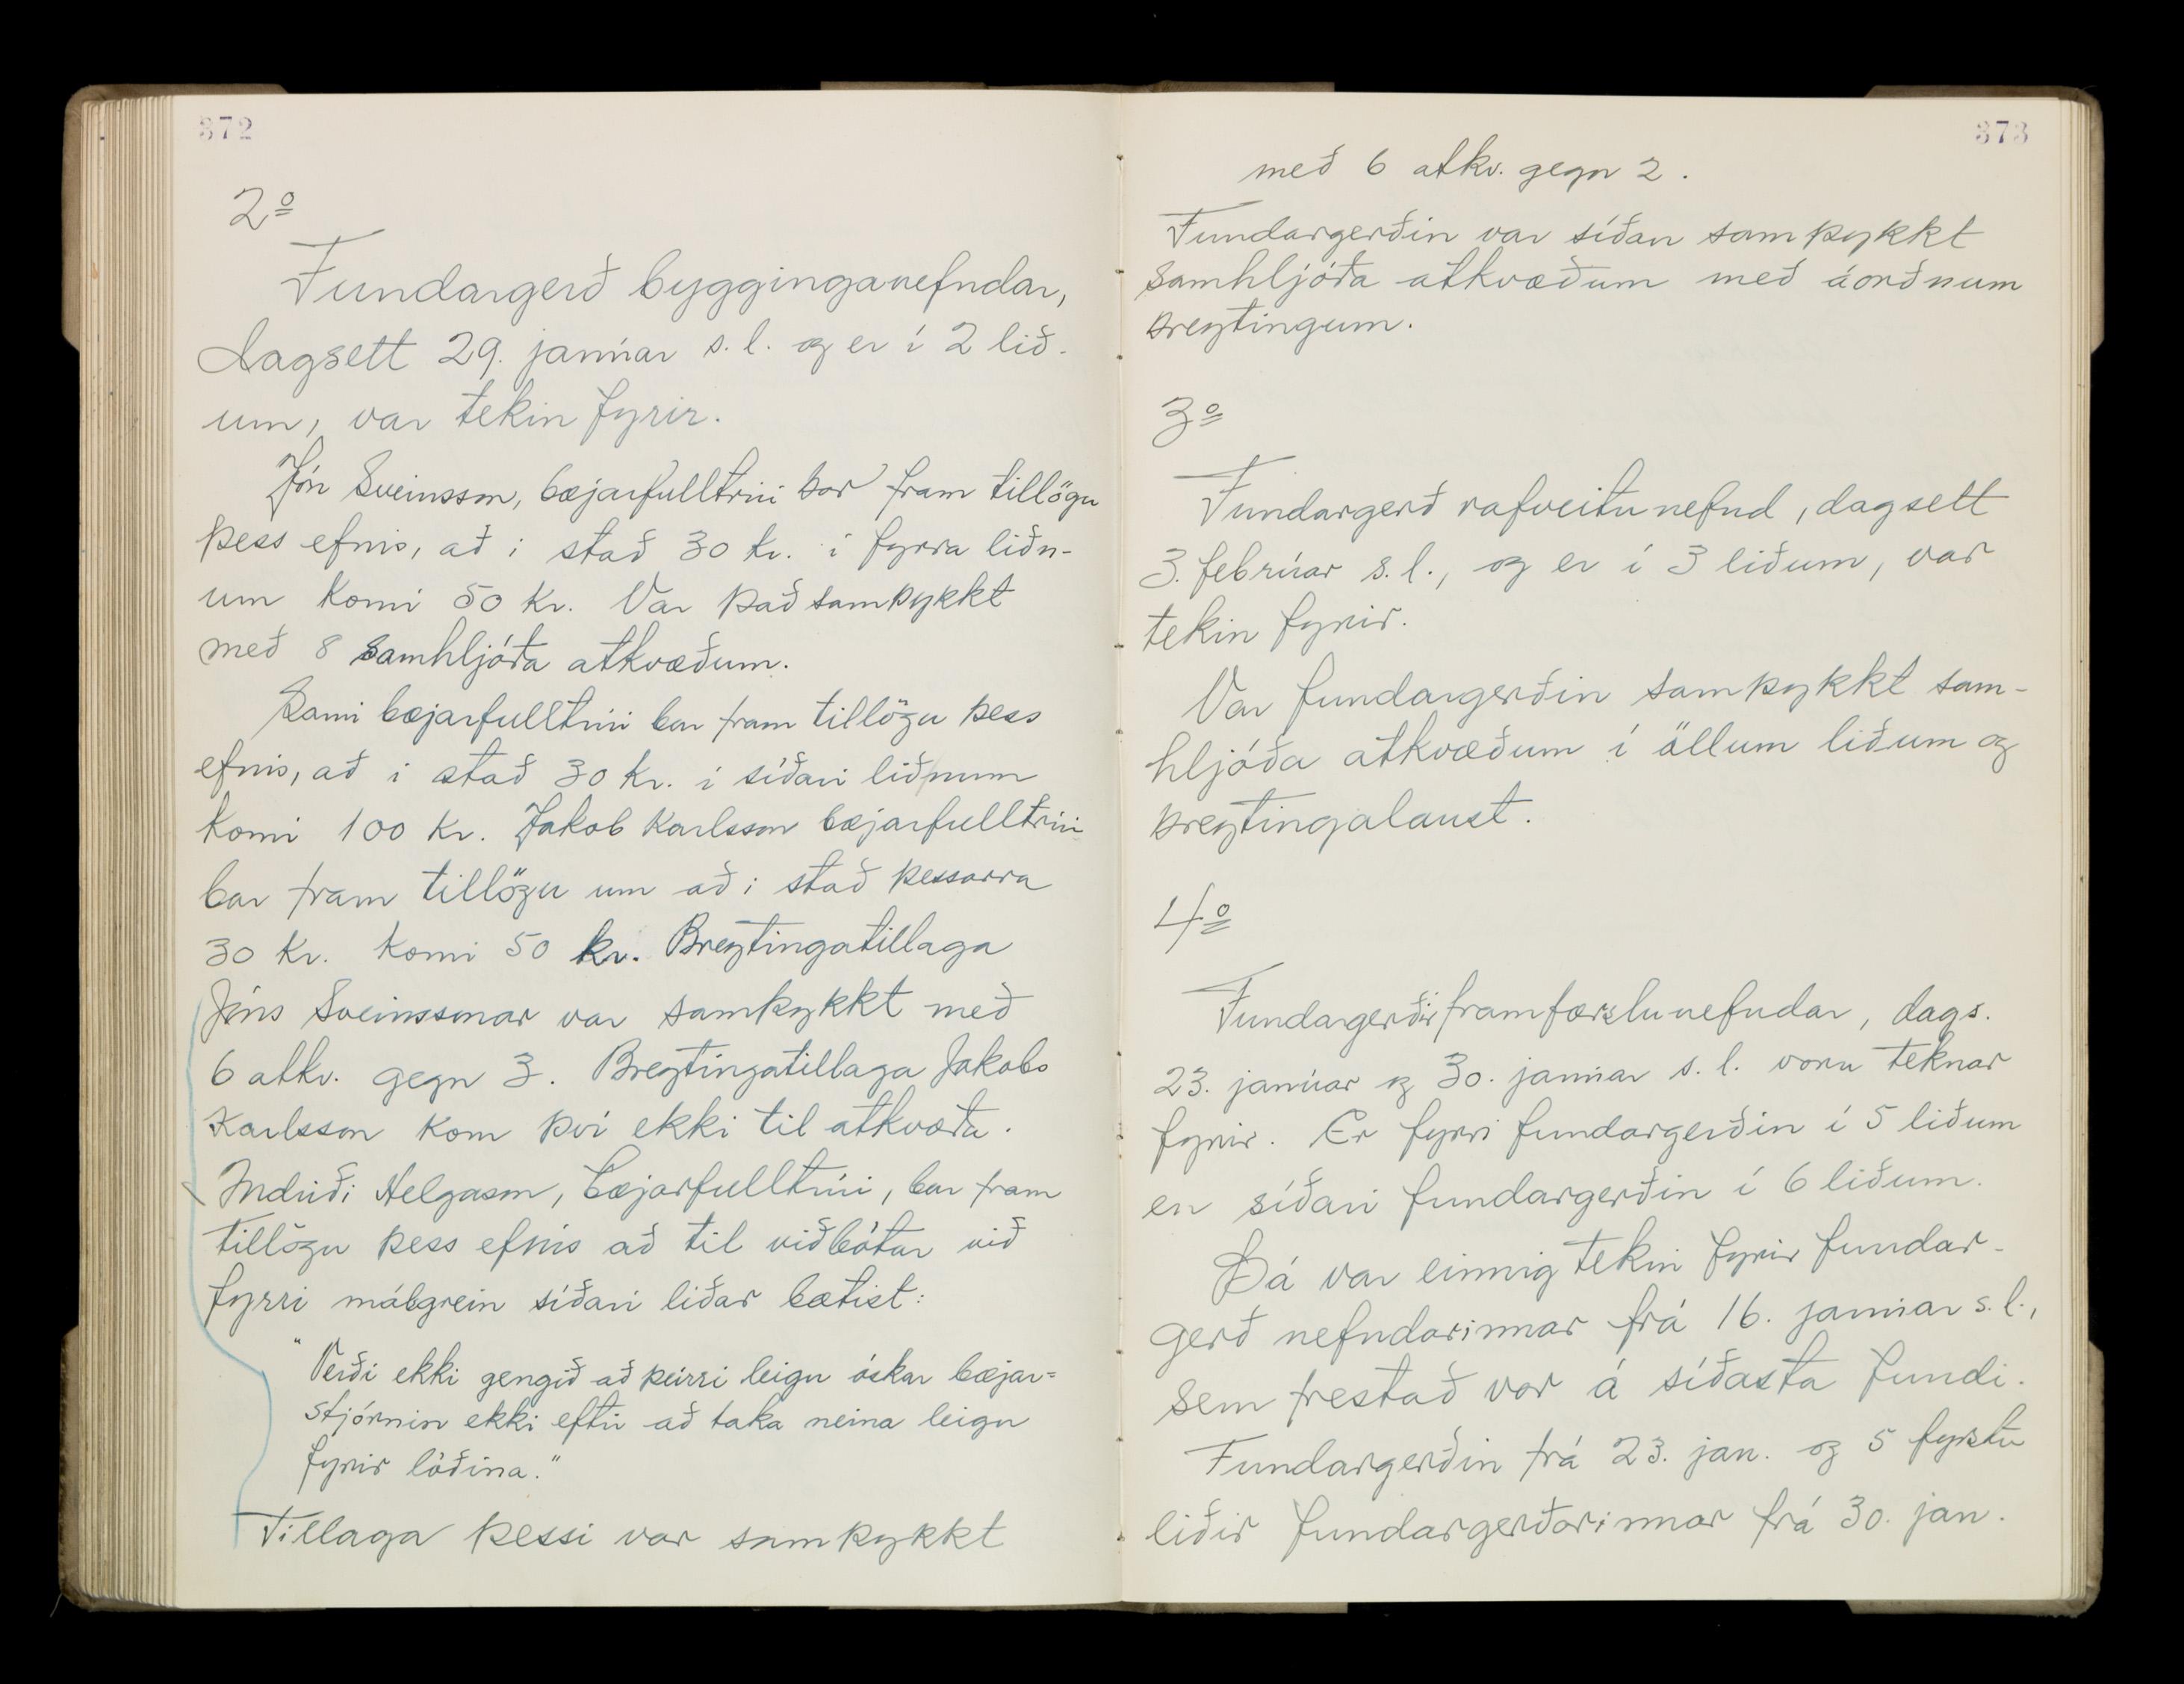 372
2º
Fundargerð bygginganefndar,
dagsett 29. janúar s.l. og er í 2 lið-
um, var tekin fyrir.
Jón Sveinsson, bæjarfulltrúi bar fram tillögu
þess efnis, að í stað 30 kr. í fyrra liðn-
um komi 50 kr. Var það samþykkt
með 8 samhljóða atkvæðum.
Sami bæjarfulltrúi bar fram tillögu þess
efnis, að í stað 30 kr. í síðari liðnum
komi 100 kr. Jakob Karlsson bæjarfulltrúi
bar fram tillögu um að í stað þessarra
30 kr. komi 50 kr. Breytingatillaga
Jóns Sveinssonar var samþykkt með
6 atkv. gegn 3. Breytingatillaga Jakobs
Karlsson kom því ekki til atkvæða.
Indriði Helgason, bæjarfulltrúi, bar fram
tillögu þess efnis að til viðbótar við
fyrri málsgrein síðari liðar bætist:
"Verði ekki gengið að þeirri leigu óskar bæjar=
stjórnin ekki eftir að taka neina leigu
fyrir lóðina."
Tillaga þessi var samþykkt
373
með 6 atkv. gegn 2.
Fundargerðin var síðan samþykkt
samhljóða atkvæðum með áorðnum
breytingum.
3º
Fundargerð rafveitunefnd, dagsett
3. febrúar s.l., og er í 3 liðum, var
tekin fyrir.
Var fundargerðin samþykkt sam-
hljóða atkvæðum í öllum liðum og
breytingalaust.
4º
Fundargerðir framfærslunefndar, dags.
23. janúar og 30. janúar s.l. voru teknar
fyrir. Er fyrri fundargerðin í 5 liðum
en síðari fundargerðin í 6 liðum.
Þá var einnig tekin fyrir fundar-
gerð nefndarinnar frá 16. janúar s.l.,
sem frestað var á síðasta fundi.
Fundargerðin frá 23. jan. og 5 fyrstu
liðir fundargerðarinnar frá 30. jan.